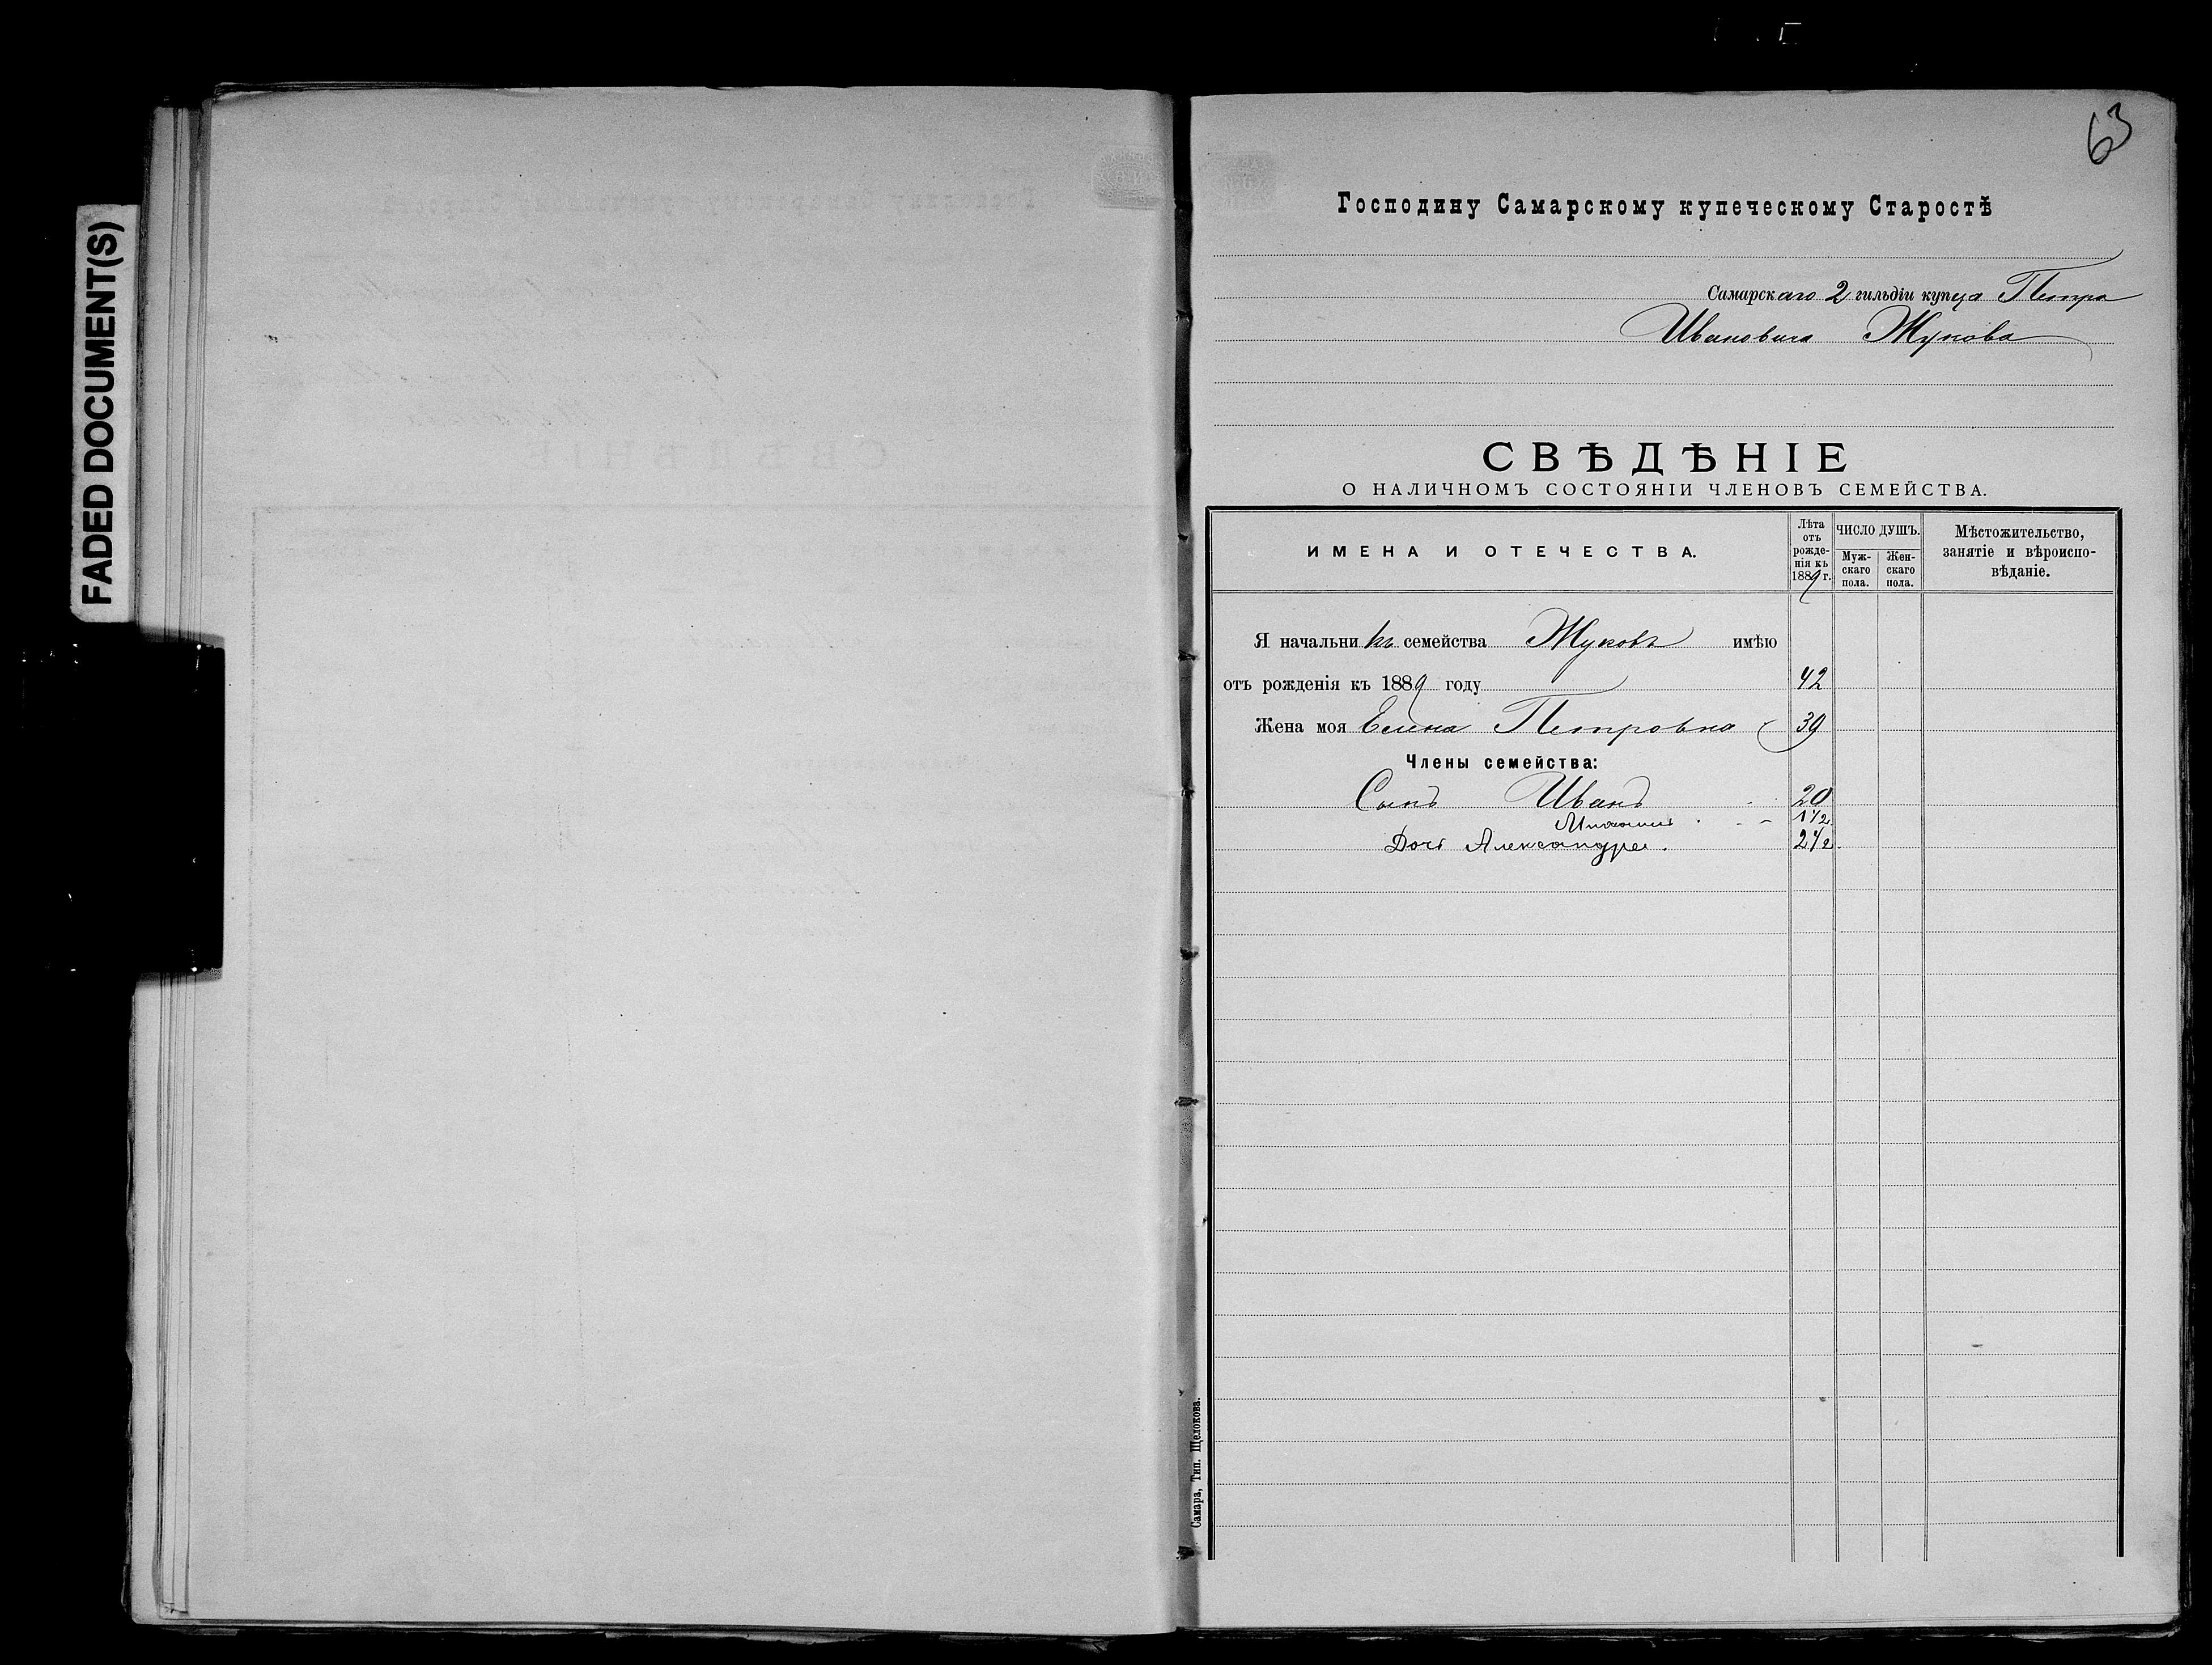 FADED DOCUMENT(S)
63
Господину Самарскому купеческому Старостѣ
Самарскаго 2 гильдіи купца Петра
Ивановича Жукова
СВѢДѢНІЕ
О НАЛИЧНОМЪ СОСТОЯНІИ ЧЛЕНОВЪ СЕМЕЙСТВА.
ИМЕНА И ОТЕЧЕСТВА.
Лѣта
отъ
рожде-
нія къ
1889 г.
ЧИСЛО ДУШЪ.
Муж-
скаго
пола.
Жен-
скаго
пола.
Мѣстожительство,
занятіе и вѣроиспо-
вѣданіе.
Я начальникъ семейства Жуковъ имѣю
отъ рожденія къ 1889 году 42
Жена моя Елена Петровна 39
Члены семейства:
Сынъ Иванъ 20
Михаилъ 1 1/2
Дочь Александра. 2 1/2
Самара, Тип. Щелокова.